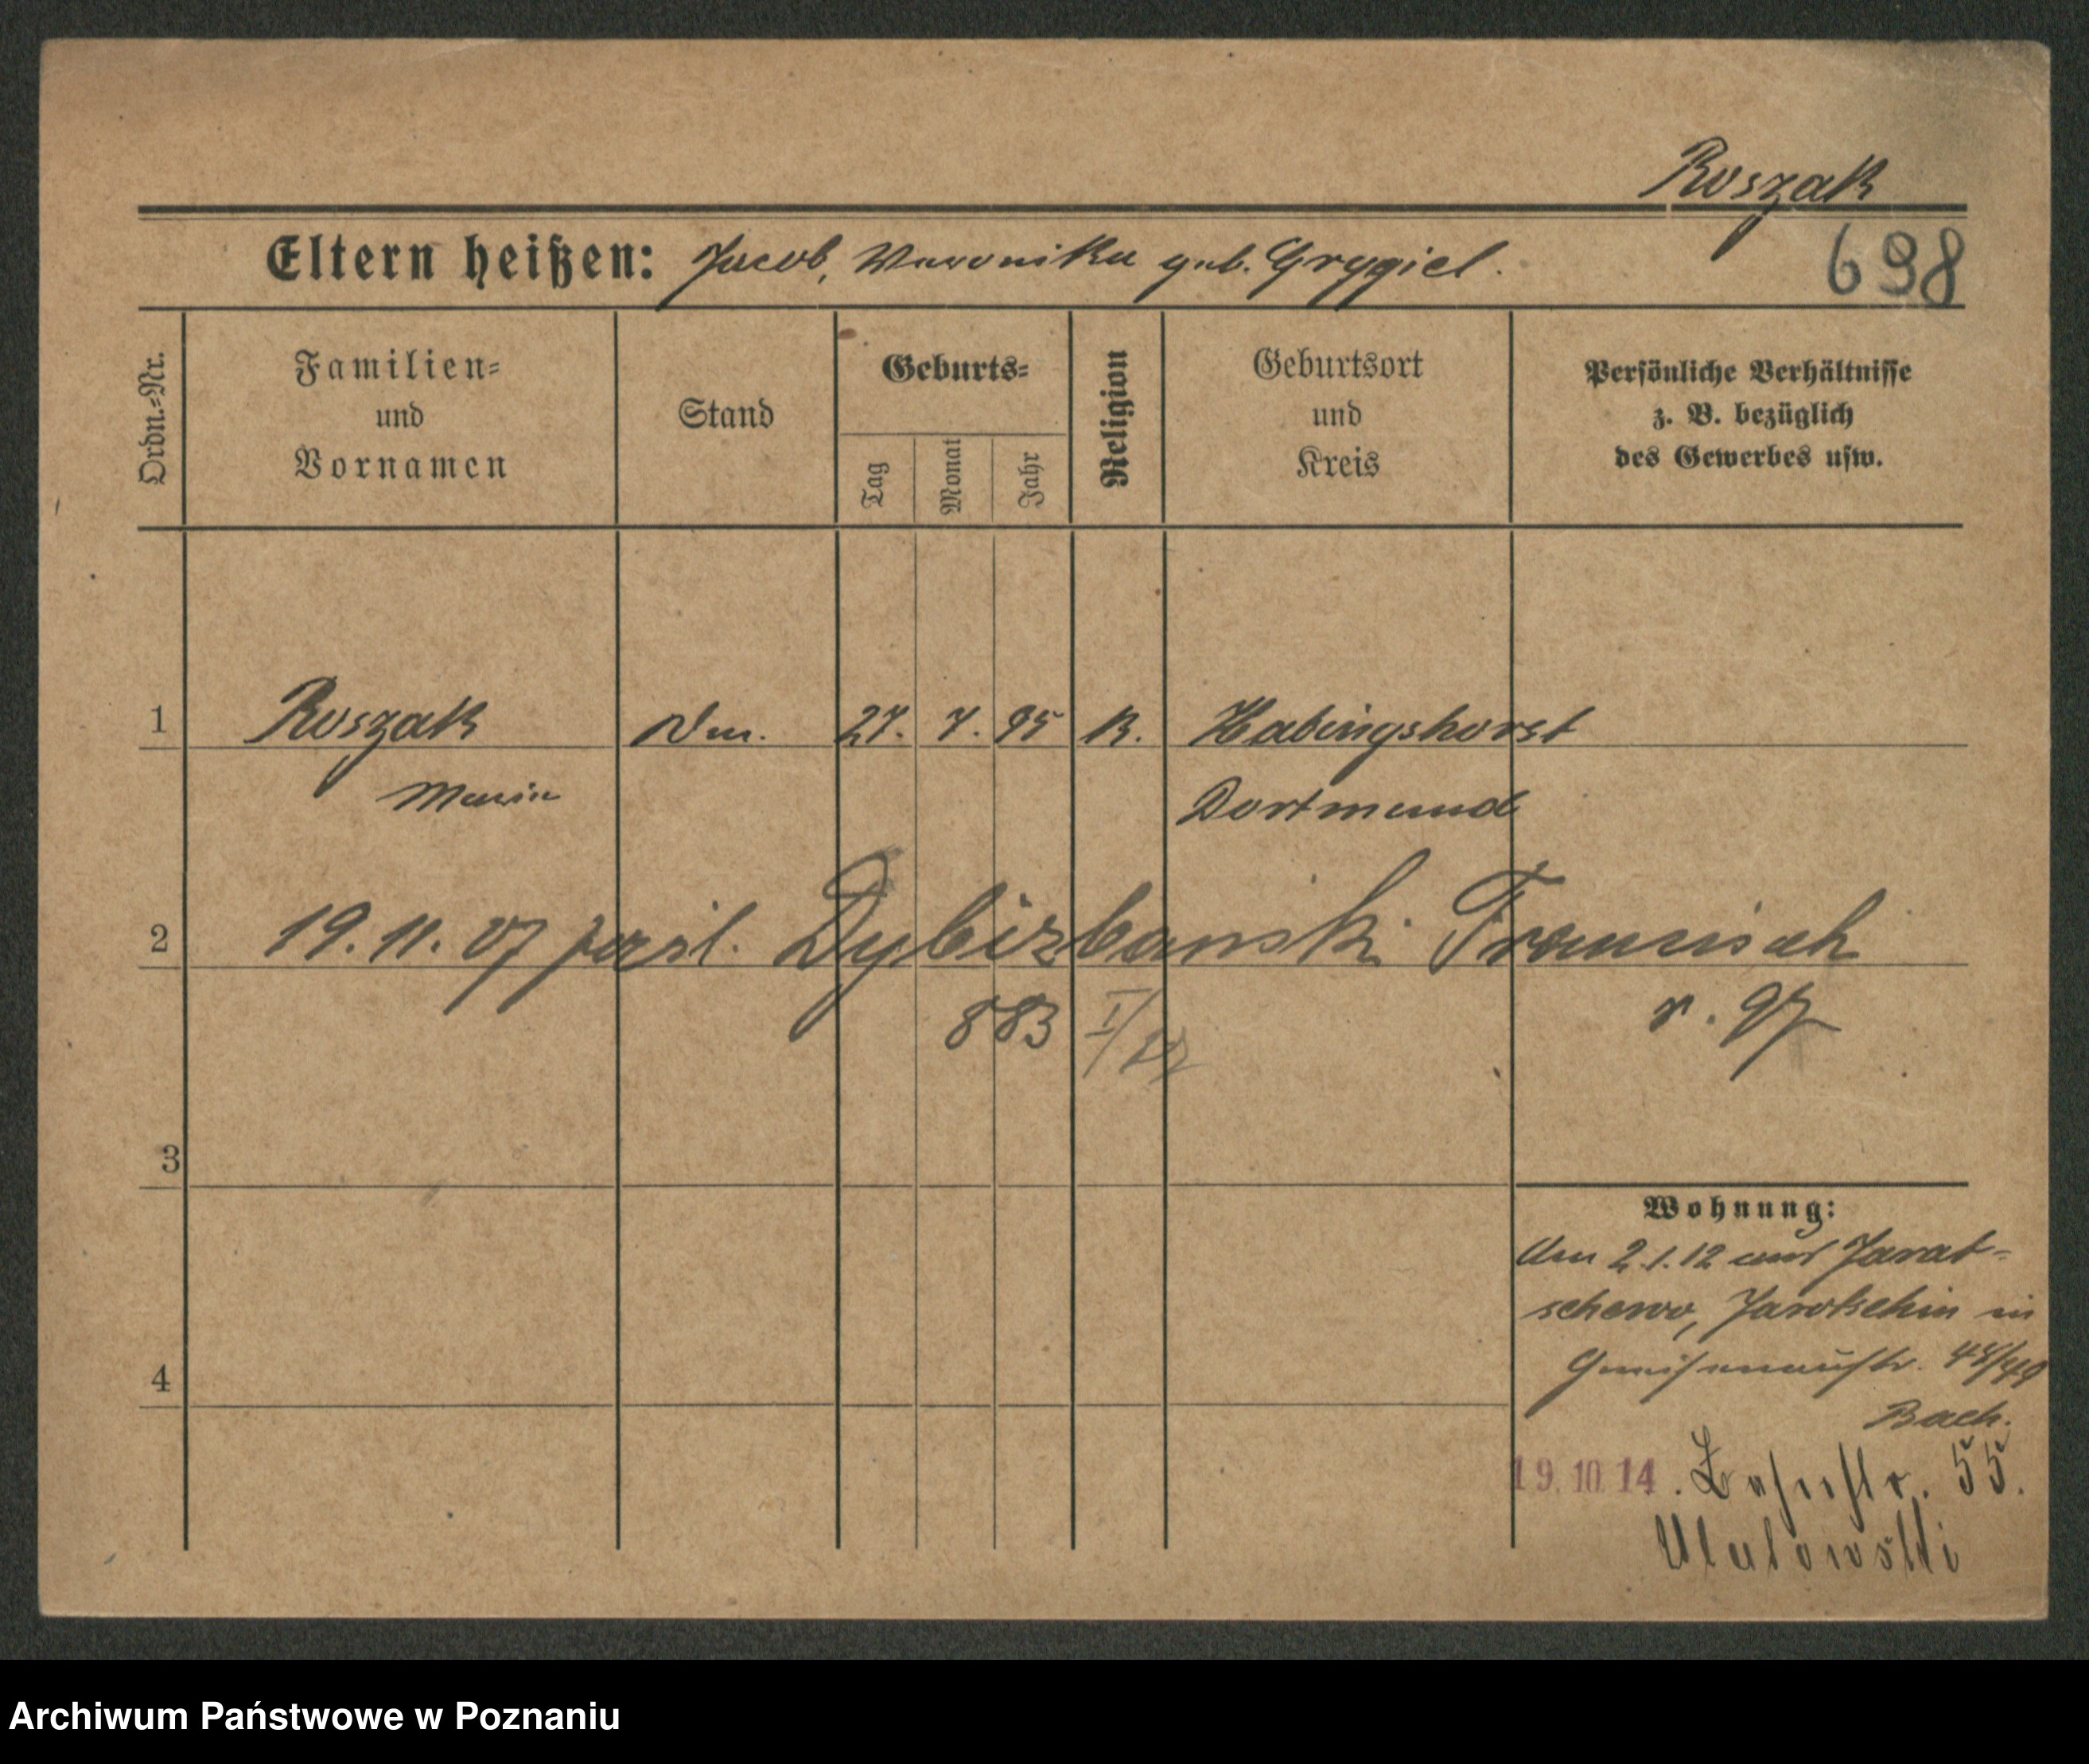 Roszak
Eltern heißen: Jacob, Weronika geb. Grygiel.
698
Ordn.=Nr.
Familien=
und
Vornamen
Stand
Geburts=
Tag
Monat
Jahr
Religion
Geburtsort
und
Kreis
Persönliche Verhältnisse
z. B. bezüglich
des Gewerbes usw.
1 Roszak 27. 7. 95 K. Habingshorst
Maria Dortmund
2 19. 11. 07 Dybizbanski Franciszek
883 r. 97
3
Wohnung:
Am 2.1.12 aus Jarat-
schewo, Jarotschin in
4 Gneisenaustr.
Bach.
19. 10. 14. 55.